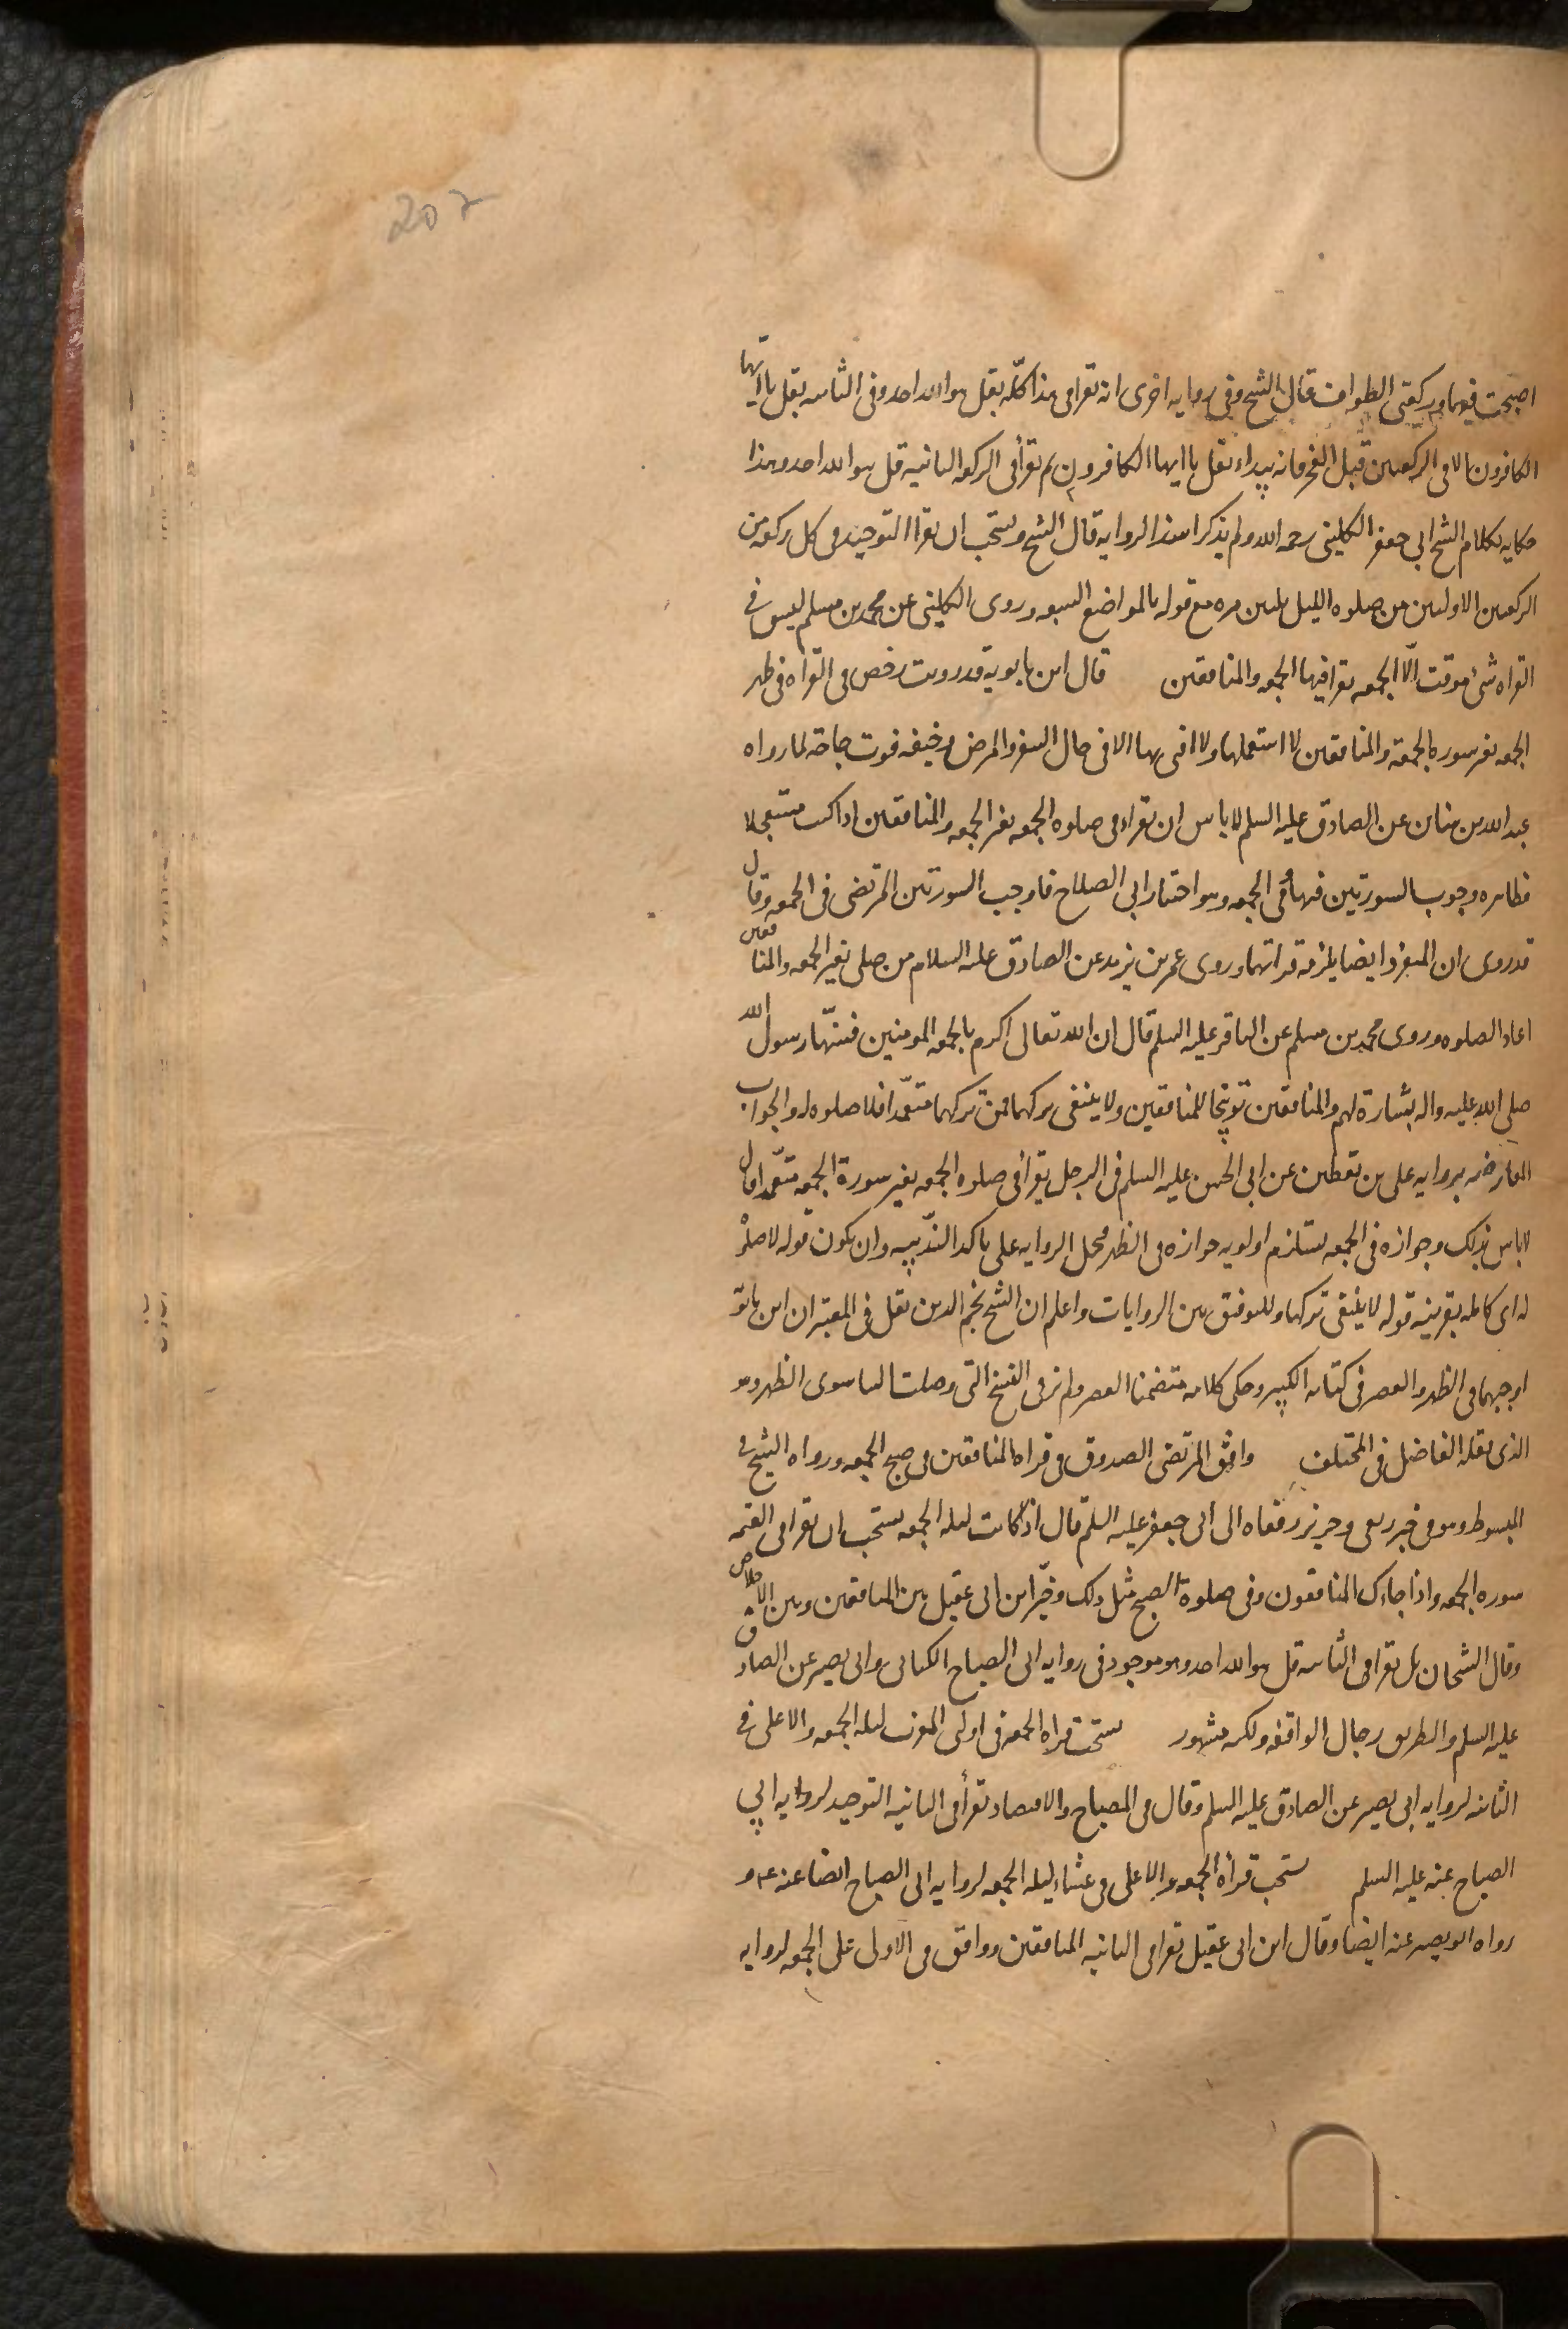 202
اصبحت فيهما وركعتى الطواف قال الشيخ وفى روايه اخرى انه تقرا فى هذا كلّه بقل هو الله احد وفى الثانيه بقل يا ايّها
الكافرون الا فى الركعتين قبل الفجر فانه يبداء بقل يا ايها الكافرون ثم تقرأ فى الركعه الثانيه قل هو الله احد وهذا
حكايه لكلام الشيخ ابى جعفر الكلينى رحمه الله ولم يذكرا سند الروايه قال الشيخ ويستحب ان يقرا التوحيد فى كل ركعه من
الركعتين الاولتين من صلوه الليل ثلثين مره مع قوله بالمواضع السبعه وروى الكلينى عن محمد بن مسلم ليس فى
القراه شئ موقت الّا الجمعه تقرا فيها الجمعه والمنافقين قال ابن بابويه قد رويت رخص فى القراه فى ظهر
الجمعه بغير سوره الجمعة والمنافقين لا استعملها ولا افتى بها الا فى حال السفر والمرض وخيفه فوت حاجة لما رواه
عبد الله بن سنان عن الصادق عليه السلم لا باس ان تقراء فى صلوه الجمعه بغير الجمعه والمنافقين اذا كنت مستعجلا
فظاهره وجوب السورتين فيها وفى الجمعه وهو اختيار ابى الصلاح فاوجب السورتين المرتضى فى الجمعه وقال
قد روى ان المنفرد ايضا يلزمه قراتهما وروى عمر بن يزيد عن الصادق عليه السلام من صلى بغير الجمعه والمنافقين
اعاد الصلوه وروى محمد بن مسلم عن الباقر عليه السلم قال ان الله تعالى اكرم بالجمعه المومنين فسنّها رسول الله
صلى الله عليه واله بشارة لهم والمنافقين توبيخا للمنافقين ولا ينبغى تركهما فمن تركهما متعمّدا فلا صلوه له والجواب
المعارضه بروايه على بن يقطين عن ابى الحسن عليه السلم فى الرجل يقرا فى صلوه الجمعه بغير سورة الجمعه متعّمدا قال
لا باس بذلك وجوازه فى الجمعه يستلزم اولويه جوازه فى الظهر محمل الروايه على تاكد الندبيه وان يكون قوله لا صلوة
له اى كامله بقرينه قوله لا ينبغى تركهما وللتوفيق بين الروايات واعلم ان الشيخ نجم الدين نقل فى المعتبر ان ابن بابويه
اوجبهما فى الظهر والعصر فى كتابه الكبير وحكى كلامه متضمنا العصر ولم نر فى النسخ التى وصلت الينا سوى الظهر وهو
الذى نقله الفاضل فى المختلف وافق المرتضى الصدوق فى قراه المنافقين فى صبح الجمعه ورواه الشيخ فى
المبسوط وهو فى خبر ربعى وحريز رفعاه الى ابى جعفر عليه السلم قال اذا كانت ليله الجمعه يستحب ان تقرا فى العتمه
سوره الجمعه واذا جاءك المنافقون وفى صلوة الصبح مثل ذلك وخيّر ابن ابى عقيل بين المنافقين وبين الاخلاص
وقال الشيخان بل تقرا فى الثانيه قل هو الله احد وهو موجود فى روايه ابى الصباح الكنانى وابى بصير عن الصادق
عليه السلم والطريق رجال الواقفه ولكنه مشهور يستحب قراه الجمعه فى اولى المغرب ليله الجمعه والاعلى فى
الثانيه لروايه ابى بصير عن الصادق عليه السلم وقال فى المصباح والاقتصاد تقرأ فى الثانيه التوحيد لروايه ابى
الصباح عنه عليه السلم يستحب قرأه الجمعه والاعلى فى عشاء ليله الجمعه لروايه ابى الصباح ايضا عنه ع و
رواه ابو بصير عنه ايضا وقال ابن ابى عقيل تقرا فى الثانيه المنافقين ووافق فى الاولى على الجمعه لروايه